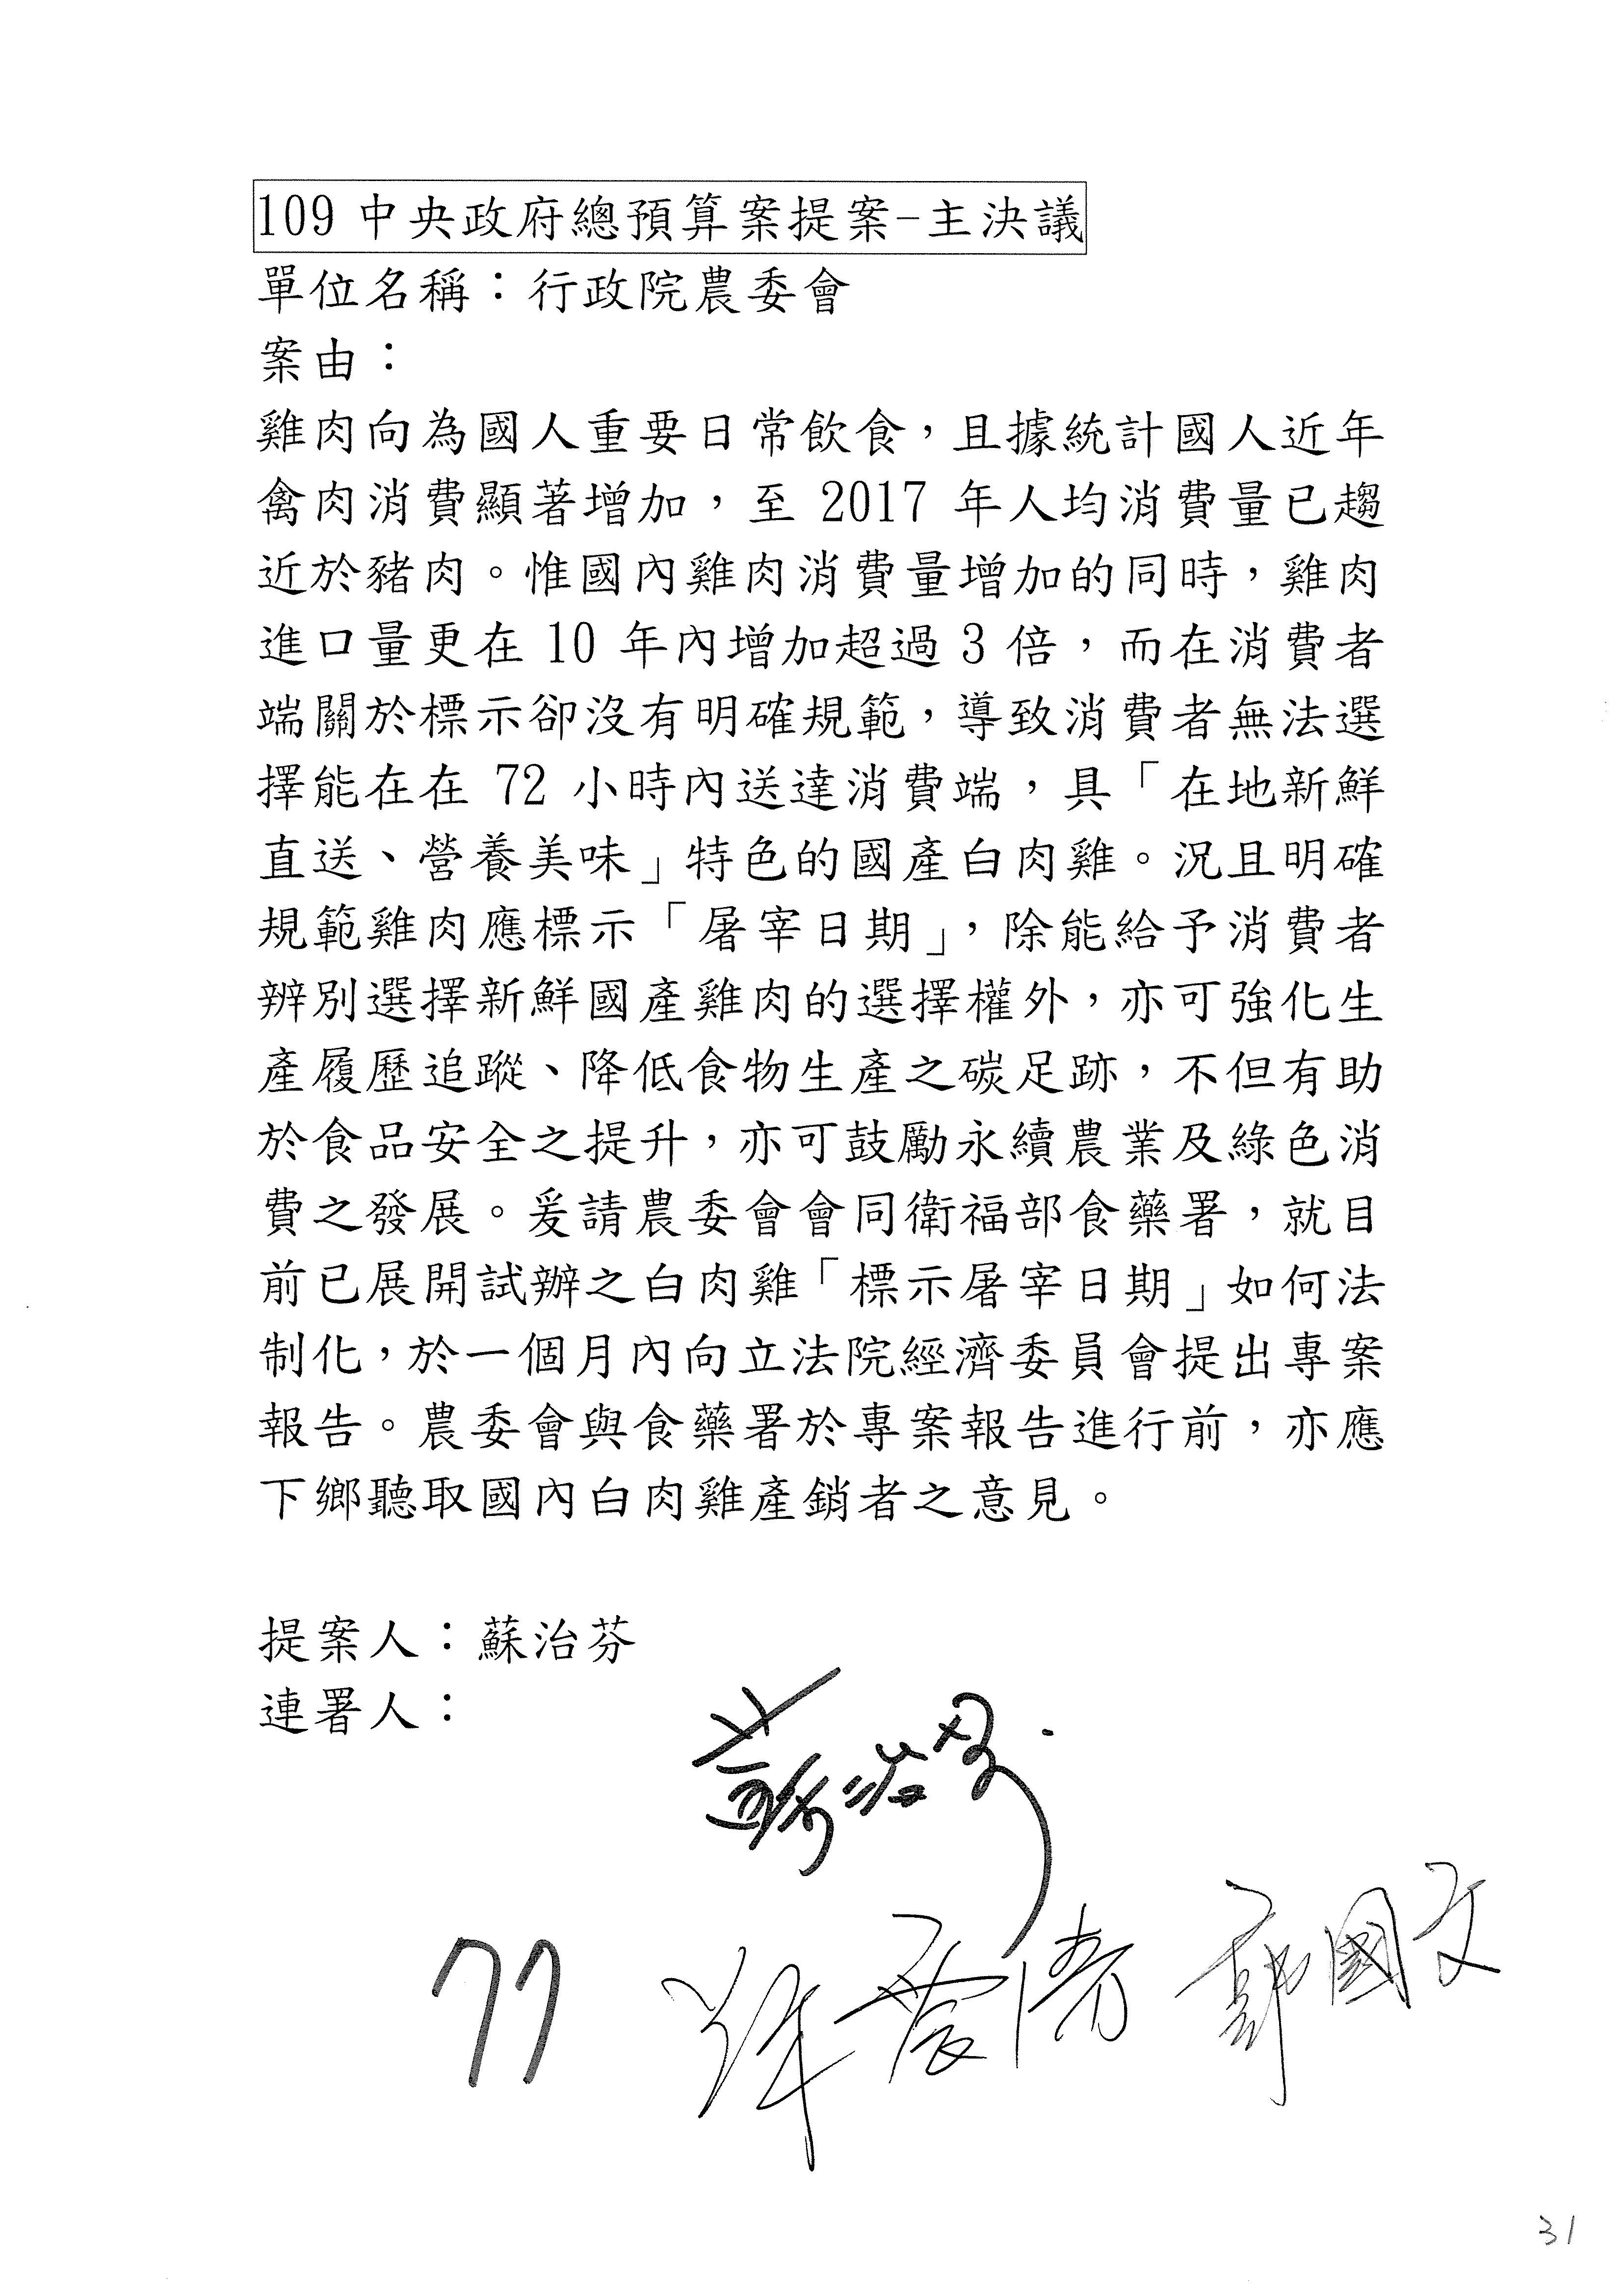 109 中央政府總預算案提案-主決議
單位名稱：行政院農委會
案由：
雞肉向為國人重要日常飲食，且據統計國人近年
禽肉消費顯著增加，至 2017 年人均消費量已趨
近於豬肉。惟國內雞肉消費量增加的同時，雞肉
進口量更在 10 年內增加超過 3 倍，而在消費者
端關於標示卻沒有明確規範，導致消費者無法選
擇能在在 72 小時內送達消費端，具「在地新鮮
直送、營養美味」特色的國產白肉雞。況且明確
規範雞肉應標示「屠宰日期」，除能給予消費者
辨別選擇新鮮國產雞肉的選擇權外，亦可強化生
產履歷追蹤、降低食物生產之碳足跡，不但有助
於食品安全之提升，亦可鼓勵永續農業及綠色消
費之發展。爰請農委會會同衛福部食藥署，就目
前已展開試辦之白肉雞「標示屠宰日期」如何法
制化，於一個月內向立法院經濟委員會提出專案
報告。農委會與食藥署於專案報告進行前，亦應
下鄉聽取國內白肉雞產銷者之意見。
提案人：蘇治芬
連署人：
蘇治芬
77
郭國文
31